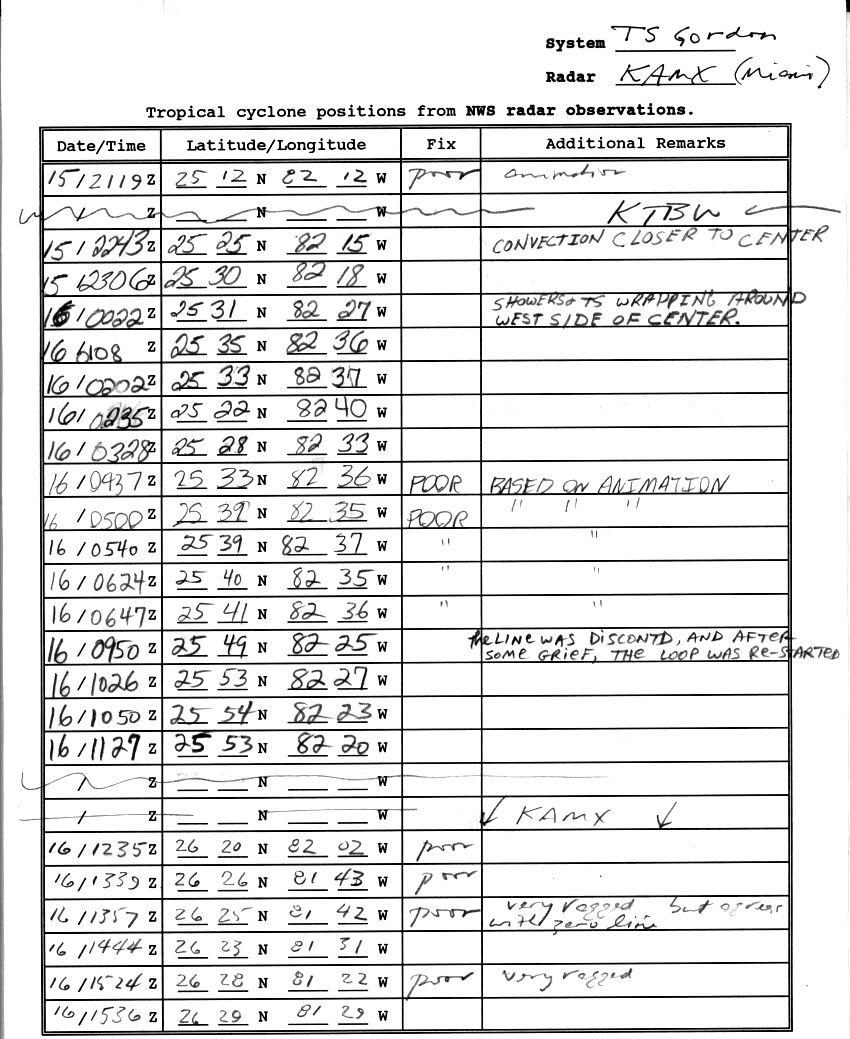 System TS Gordon
Radar KAMX (Miami)
Tropical cyclone positions from NWS radar observations.
Date/Time Latitude/Longitude Fix Additional Remarks
15/2119 Z 25 12 N 82 12 W poor animation
/ Z N W KTBW
15/2243 Z 25 25 N 82 15 W CONVECTION CLOSER TO CENTER
15/2306 Z 25 30 N 82 18 W
16/0022 Z 25 31 N 82 27 W SHOWERS & TS WRAPPING AROUND
WEST SIDE OF CENTER.
16/0108 Z 25 35 N 82 36 W
16/0202 Z 25 33 N 82 37 W
16/0235 Z 25 22 N 82 40 W
16/0328 Z 25 28 N 82 33 W
16/0437 Z 25 33 N 82 36 W POOR BASED ON ANIMATION
16/0500 Z 25 39 N 82 35 W POOR " " "
16/0540 Z 25 39 N 82 37 W " "
16/0624 Z 25 40 N 82 35 W " "
16/0647 Z 25 41 N 82 36 W " "
16/0950 Z 25 49 N 82 25 W the LINE WAS DISCONTD, AND AFTER
SOME GRIEF, THE LOOP WAS RE-STARTED
16/1026 Z 25 53 N 82 27 W
16/1050 Z 25 54 N 82 23 W
16/1127 Z 25 53 N 82 20 W
/ Z N W
/ Z N W ↓ KAMX ↓
16/1235 Z 26 20 N 82 02 W poor
16/1339 Z 26 26 N 81 43 W poor
16/1357 Z 26 25 N 81 42 W poor very ragged but agrees
with zero line
16/1444 Z 26 23 N 81 31 W
16/1524 Z 26 28 N 81 22 W poor very ragged
16/1536 Z 26 29 N 81 29 W